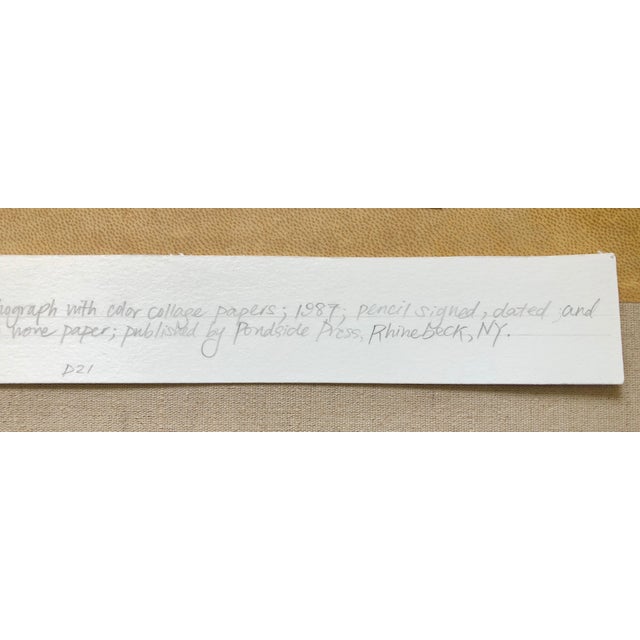 hograph with color collage papers; 1987; pencil signed, dated and
hone paper; published by Pondside Press, Rhinebeck, NY.
D21